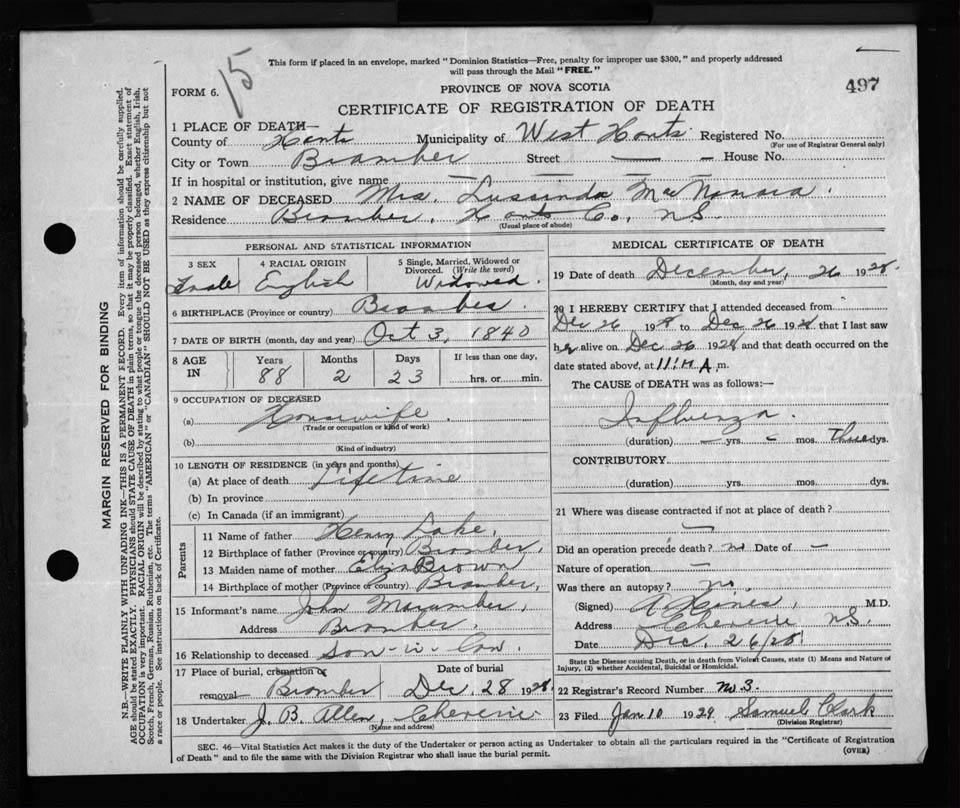 This form if placed in an envelope, marked "Dominion Statistics—Free, penalty for improper use $300," and properly addressed
will pass through the Mail "FREE."
15
FORM 6.
PROVINCE OF NOVA SCOTIA
497
CERTIFICATE OF REGISTRATION OF DEATH
1 PLACE OF DEATH—
County of Hants Municipality of West Hants Registered No.
(For use of Registrar General only)
City or Town Bramber Street — – House No.
If in hospital or institution, give name — — —
2 NAME OF DECEASED Mrs. Lussinda MacNamara.
Residence Bramber, Hants Co., N.S.
(Usual place of abode)
PERSONAL AND STATISTICAL INFORMATION
3 SEX 4 RACIAL ORIGIN 5 Single, Married, Widowed or
Divorced. (Write the word)
English Widowed.
6 BIRTHPLACE (Province or country) Bramber
7 DATE OF BIRTH (month, day and year) Oct 3, 1840
8 AGE IN Years Months Days If less than one day,
88 2 23 hrs. or min.
9 OCCUPATION OF DECEASED
(a) Housewife.
(Trade or occupation or kind of work)
(b)
(Kind of industry)
10 LENGTH OF RESIDENCE (in years and months)
(a) At place of death Lifetime
(b) In province
(c) In Canada (if an immigrant)
Parents
11 Name of father Henry Lake.
12 Birthplace of father (Province or country) Bramber.
13 Maiden name of mother Eliza Brown
14 Birthplace of mother (Province or country) Bramber,
15 Informant's name John Macumber,
Address Bramber.
16 Relationship to deceased Son-in-law.
17 Place of burial, cremation or Date of burial
removal Bramber Dec. 28 1928
18 Undertaker J. B. Allen, Cheverie
(Name and address)
MEDICAL CERTIFICATE OF DEATH
19 Date of death December, 26 1928.
(Month, day and year)
20 I HEREBY CERTIFY that I attended deceased from
Dec 26 1928 to Dec 26 1928 that I last saw
her alive on Dec 26 1928 and that death occurred on
date stated above, at A. m.
The CAUSE OF DEATH was as follows:—
Influenza.
(duration) — yrs. – mos. Three dys.
CONTRIBUTORY
(duration) yrs. mos. dys.
21 Where was disease contracted if not at place of death?
—
Did an operation precede death? no Date of —
Nature of operation —
Was there an autopsy? no
(Signed) M.D.
Address Cheverie N.S.
Date Dec. 26/28
State the Disease causing Death, or in death from Violent Causes, state (1) Means and Nature of
Injury, (2) whether Accidental, Suicidal or Homicidal.
22 Registrar's Record Number No 3.
23 Filed Jan 10 1929 Samuel Clark
(Division Registrar)
SEC. 46—Vital Statistics Act makes it the duty of the Undertaker or person acting as Undertaker to obtain all the particulars required in the "Certificate of Registration
of Death" and to file the same with the Division Registrar who shall issue the burial permit.
(OVER)
MARGIN RESERVED FOR BINDING
N.B.—WRITE PLAINLY WITH UNFADING INK—THIS IS A PERMANENT RECORD. Every item of information should be carefully supplied.
AGE should be stated EXACTLY. PHYSICIANS should STATE CAUSE OF DEATH in plain terms, so that it may be properly classified. Exact statement of
OCCUPATION is very important. RACIAL ORIGIN will be described by stating to what people or tongue the deceased person belonged, whether English, Irish,
Scotch, French, German, Russian, Ruthenian, etc. The terms "AMERICAN" or "CANADIAN" SHOULD NOT BE USED as they express citizenship but not
a race or people. See instructions on back of Certificate.